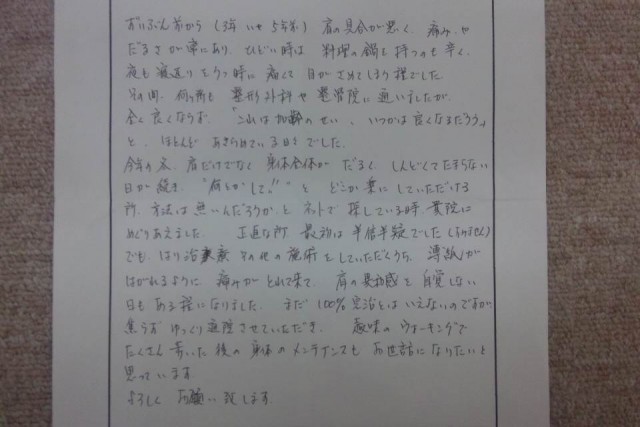 ずいぶん前から(3年いや5年前)肩の具合が悪く、痛みや
だるさが常にあり、ひどい時は料理の鍋を持つのも辛く、
夜も寝返りをうつ時に痛くて目がさめてしまう程でした。
その間、何ヶ所も整形外科や整骨院に通いましたが、
全く良くならず、「これは加齢のせい、いつかは良くなるだろう」
と、ほとんどあきらめている日々でした。
今年の夏、肩だけでなく身体全体がだるく、しんどくてたまらない
日が続き、"何とかして!!"とどこか楽にしていただける
所、方法は無いんだろうかとネットで探している時、貴院に
めぐりあえました。正直な所、最初は半信半疑でした(すみません)
でも、はり治療その他の施術をしていただくうち、薄紙が
はがれるように痛みがとれて来て、肩の違和感を自覚しない
日もある程になりました。まだ100%完治とはいえないのですが
焦らずゆっくり通院させていただき、趣味のウォーキングで
たくさん歩いた後の身体のメンテナンスもお世話になりたいと
思っています
よろしくお願い致します